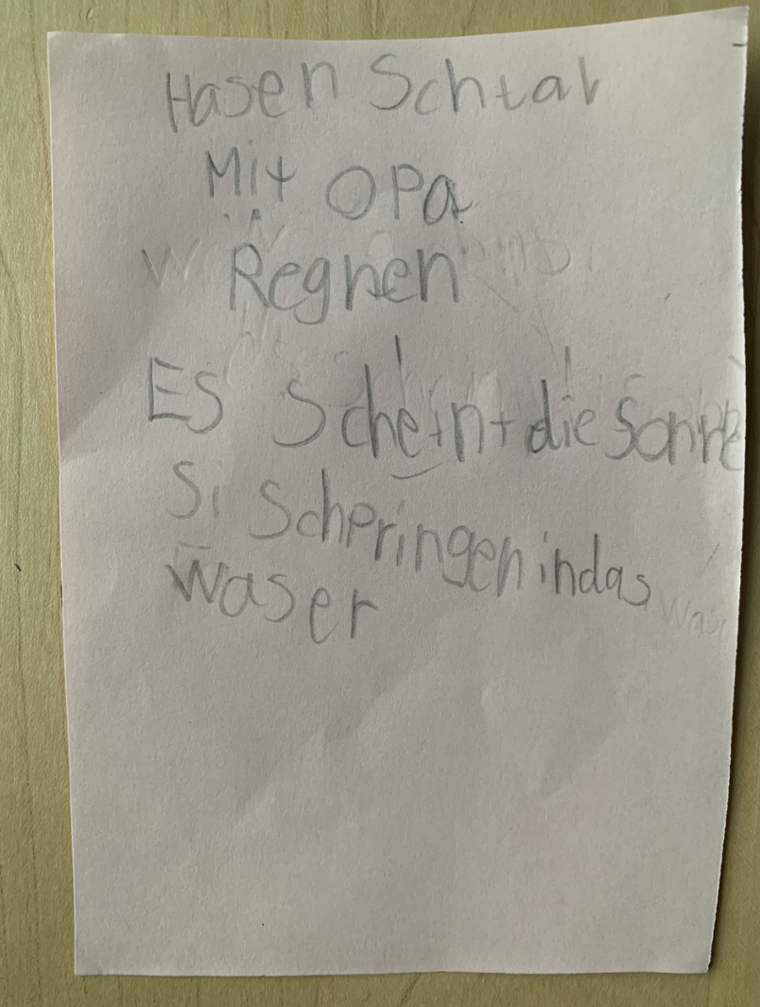 Hasen Schtal
Mit OPa
Regnen
ES Scheint die Sonne
Si Schpringen in das
waser